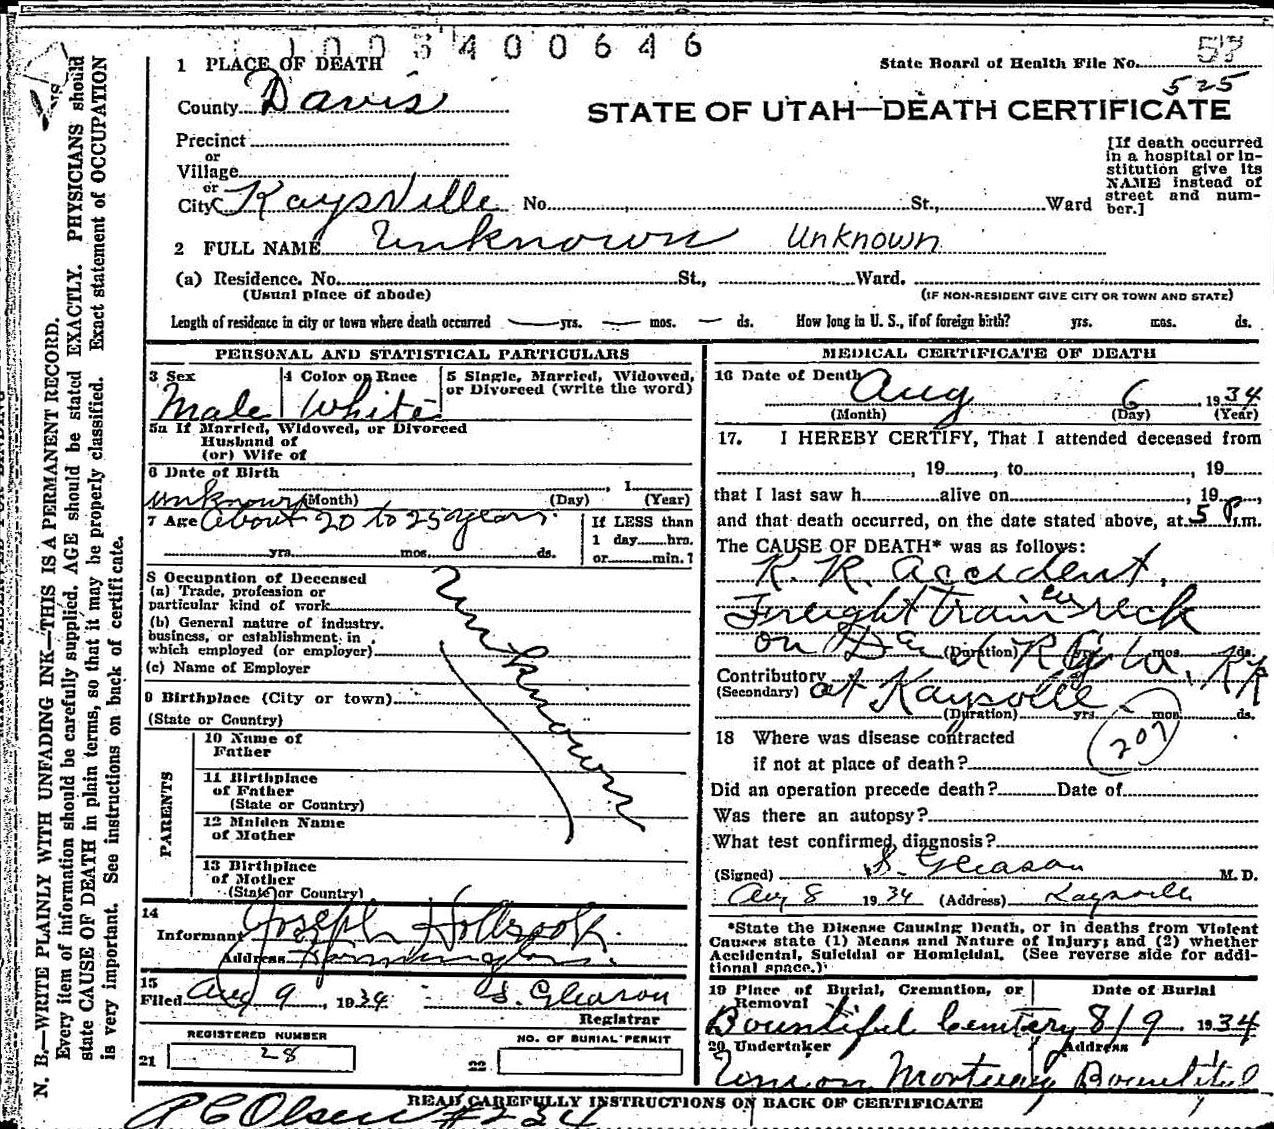 1003400646
1 PLACE OF DEATH
State Board of Health File No. 57
525
County Davis
STATE OF UTAH—DEATH CERTIFICATE
Precinct
or
Village
or
City Kaysville No. , St., Ward
[If death occurred
in a hospital or in-
stitution give its
NAME instead of
street and num-
ber.]
2 FULL NAME Unknown Unknown
(a) Residence. No. St., Ward.
(Usual place of abode) (IF NON-RESIDENT GIVE CITY OR TOWN AND STATE)
Length of residence in city or town where death occurred — yrs. — mos. — ds. How long in U. S., if of foreign birth? yrs. mos. ds.
PERSONAL AND STATISTICAL PARTICULARS
3 Sex 4 Color or Race 5 Single, Married, Widowed,
or Divorced (write the word)
Male White
5a If Married, Widowed, or Divorced
Husband of
(or) Wife of
6 Date of Birth
unknown (Month) (Day) , 1 (Year)
7 Age About 20 to 25 years.
yrs. mos. ds.
If LESS than
1 day hrs.
or min.?
8 Occupation of Deceased
(a) Trade, profession or
particular kind of work
(b) General nature of industry.
business, or establishment in
which employed (or employer)
(c) Name of Employer
Unknown
9 Birthplace (City or town)
(State or Country)
PARENTS
10 Name of
Father
11 Birthplace
of Father
(State or Country)
12 Maiden Name
of Mother
13 Birthplace
of Mother
(State or Country)
14
Informant Joseph Holbrook
Address Farmington.
15
Filed Aug 9, 1934 S. Gleason
Registrar
REGISTERED NUMBER NO. OF BURIAL PERMIT
21 28 22
MEDICAL CERTIFICATE OF DEATH
16 Date of Death Aug 6, 1934
(Month) (Day) (Year)
17. I HEREBY CERTIFY, That I attended deceased from
, 19 , to , 19
that I last saw h alive on , 19 ,
and that death occurred, on the date stated above, at 5 P.m.
The CAUSE OF DEATH* was as follows:
R. R. accident,
Freight train wreck
on D and R G W. RR
(Duration) yrs. mos. ds.
Contributory
(Secondary) at Kaysville
(Duration) yrs. mos. ds.
207
18 Where was disease contracted
if not at place of death?
Did an operation precede death? Date of
Was there an autopsy?
What test confirmed diagnosis?
(Signed) S. Gleason M. D.
Aug 8 1934 (Address) Kaysville
*State the Disease Causing Death, or in deaths from Violent
Causes state (1) Means and Nature of Injury; and (2) whether
Accidental, Suicidal or Homicidal. (See reverse side for addi-
tional space.)
19 Place of Burial, Cremation, or Date of Burial
Removal
Bountiful Cemetery 8/9 1934
20 Undertaker Address
Union Mortuary Bountiful
READ CAREFULLY INSTRUCTIONS ON BACK OF CERTIFICATE
R C Olsen #234
N. B.—WRITE PLAINLY WITH UNFADING INK—THIS IS A PERMANENT RECORD.
Every item of information should be carefully supplied. AGE should be stated EXACTLY. PHYSICIANS should
state CAUSE OF DEATH in plain terms, so that it may be properly classified. Exact statement of OCCUPATION
is very important. See instructions on back of certificate.